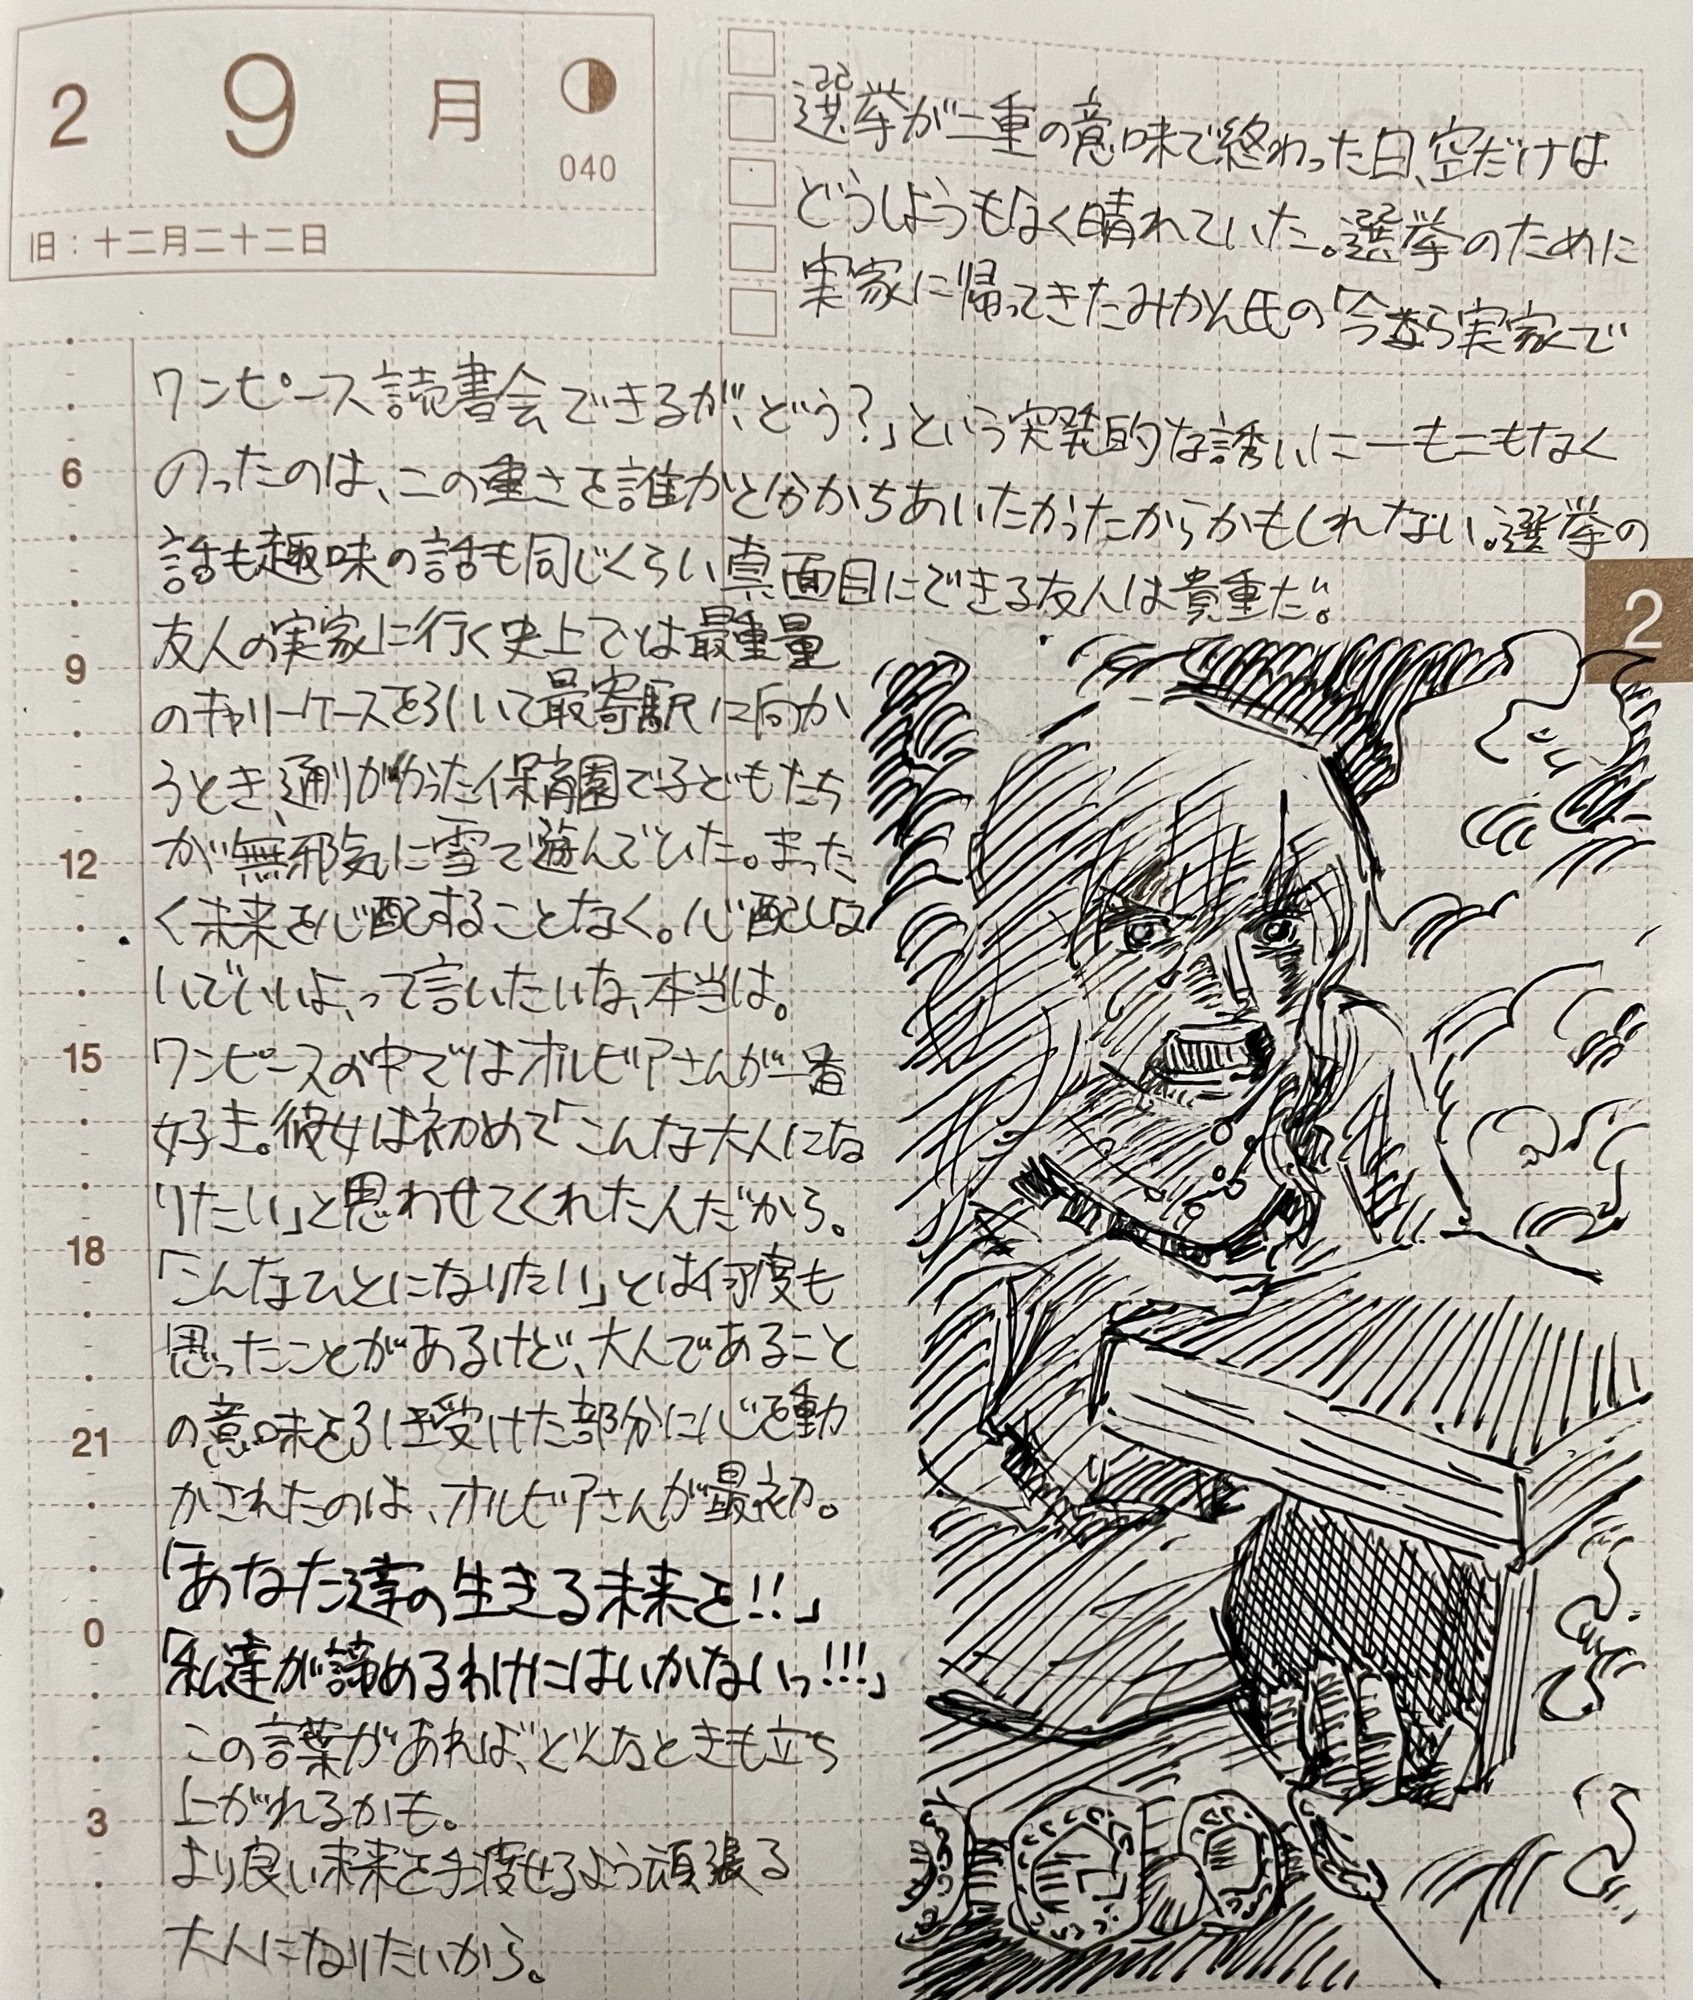 2 9 月
040
旧：十二月二十二日
選挙が二重の意味で終わった日、空だけは
どうしようもなく晴れていた。選挙のために
実家に帰ってきたみかん氏の「今なら実家で
ワンピース読書会できるが、どう？」という突発的な誘いに一も二もなく
のったのは、この重さを誰かと分かちあいたかったからかもしれない。選挙の
話も趣味の話も同じくらい真面目にできる友人は貴重だ。
友人の実家に行く史上では最重量
のキャリーケースを引いて最寄駅に向か
うとき、通りがかった保育園で子どもたち
が無邪気に雪で遊んでいた。まった
く未来を心配することなく。心配しな
いでいいよ、って言いたいな、本当は。
ワンピースの中ではオルビアさんが一番
好き。彼女は初めて「こんな大人にな
りたい」と思わせてくれた人だから。
「こんなひとになりたい」とは何度も
思ったことがあるけど、大人であること
の意味を引き受けた部分に心を動
かされたのは、オルビアさんが最初。
「あなた達の生きる未来を!!」
「私達が諦めるわけにはいかないっ!!!」
この言葉があれば、どんなときも立ち
上がれるかも。
より良い未来を手渡せるよう頑張る
大人になりたいから。
2
6
9
12
15
18
21
0
3